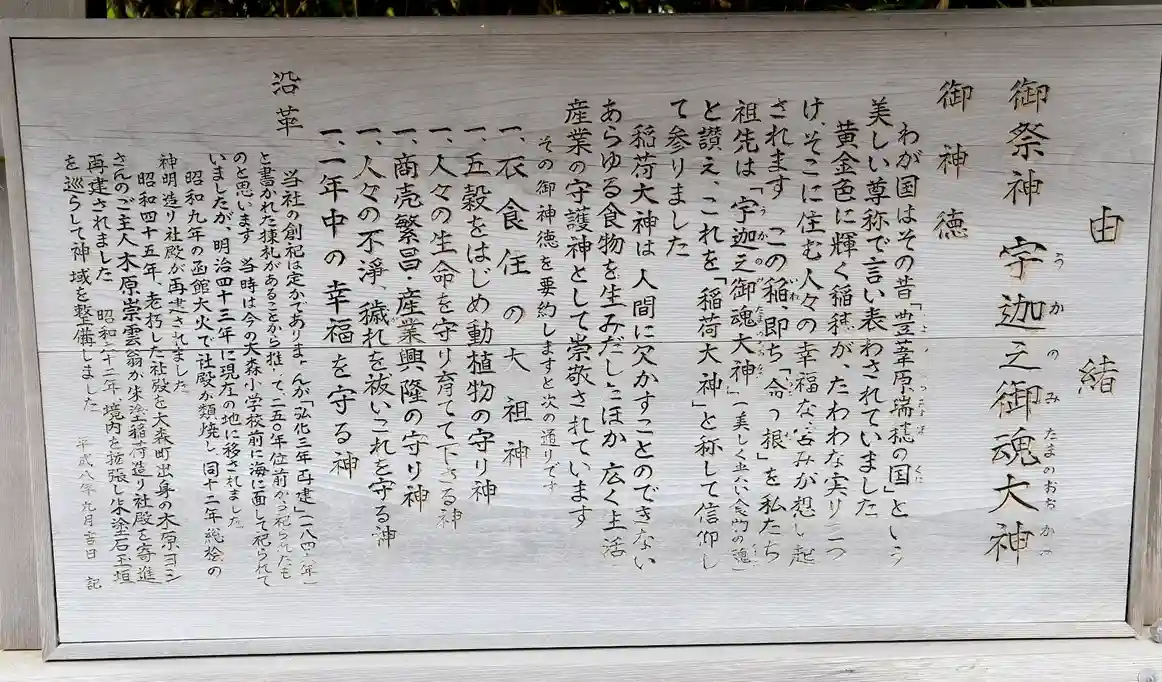 由緒
御祭神 宇迦之御魂大神
うかのみたまのおおかみ
御神徳
わが国はその昔「豊葦原瑞穂の国」という
美しい尊称で言い表わされていました
黄金色に輝く稲穂が、たわわな実りをつ
け、そこに住む人々の幸福な営みが想い起
されます この稲、即ち「命の根」を私たち
祖先は「宇迦之御魂大神」(美しく尊い食物の魂)
と讃え、これを「稲荷大神」と称して信仰し
て参りました
稲荷大神は人間に欠かすことのできない
あらゆる食物を生みだしたほか広く生活
産業の守護神として崇敬されています
その御神徳を要約しますと次の通りです
一、衣食住の大祖神
一、五穀をはじめ動植物の守り神
一、人々の生命を守り育てて下さる神
一、商売繁昌・産業興隆の守り神
一、人々の不淨、穢れを祓いこれを守る神
一、一年中の幸福を守る神
沿革
当社の創祀は定かでありませんが「弘化三年再建」(一八四 年)
と書かれた棟札があることから推して、二五〇年位前から祀られたも
のと思います 当時は今の大森小学校前に海に面して祀られて
いましたが、明治四十三年に現在の地に移されました
昭和九年の函館大火で社殿が類焼し同十二年総桧の
神明造り社殿が再建されました
昭和四十五年、老朽した社殿を大森町出身の木原ヨシ
さんのご主人木原崇雲翁が朱塗稲荷造り社殿を寄進
再建されました 昭和六十二年、境内を拡張し朱塗石玉垣
を巡らして神域を整備しました
平成八年九月吉日 記